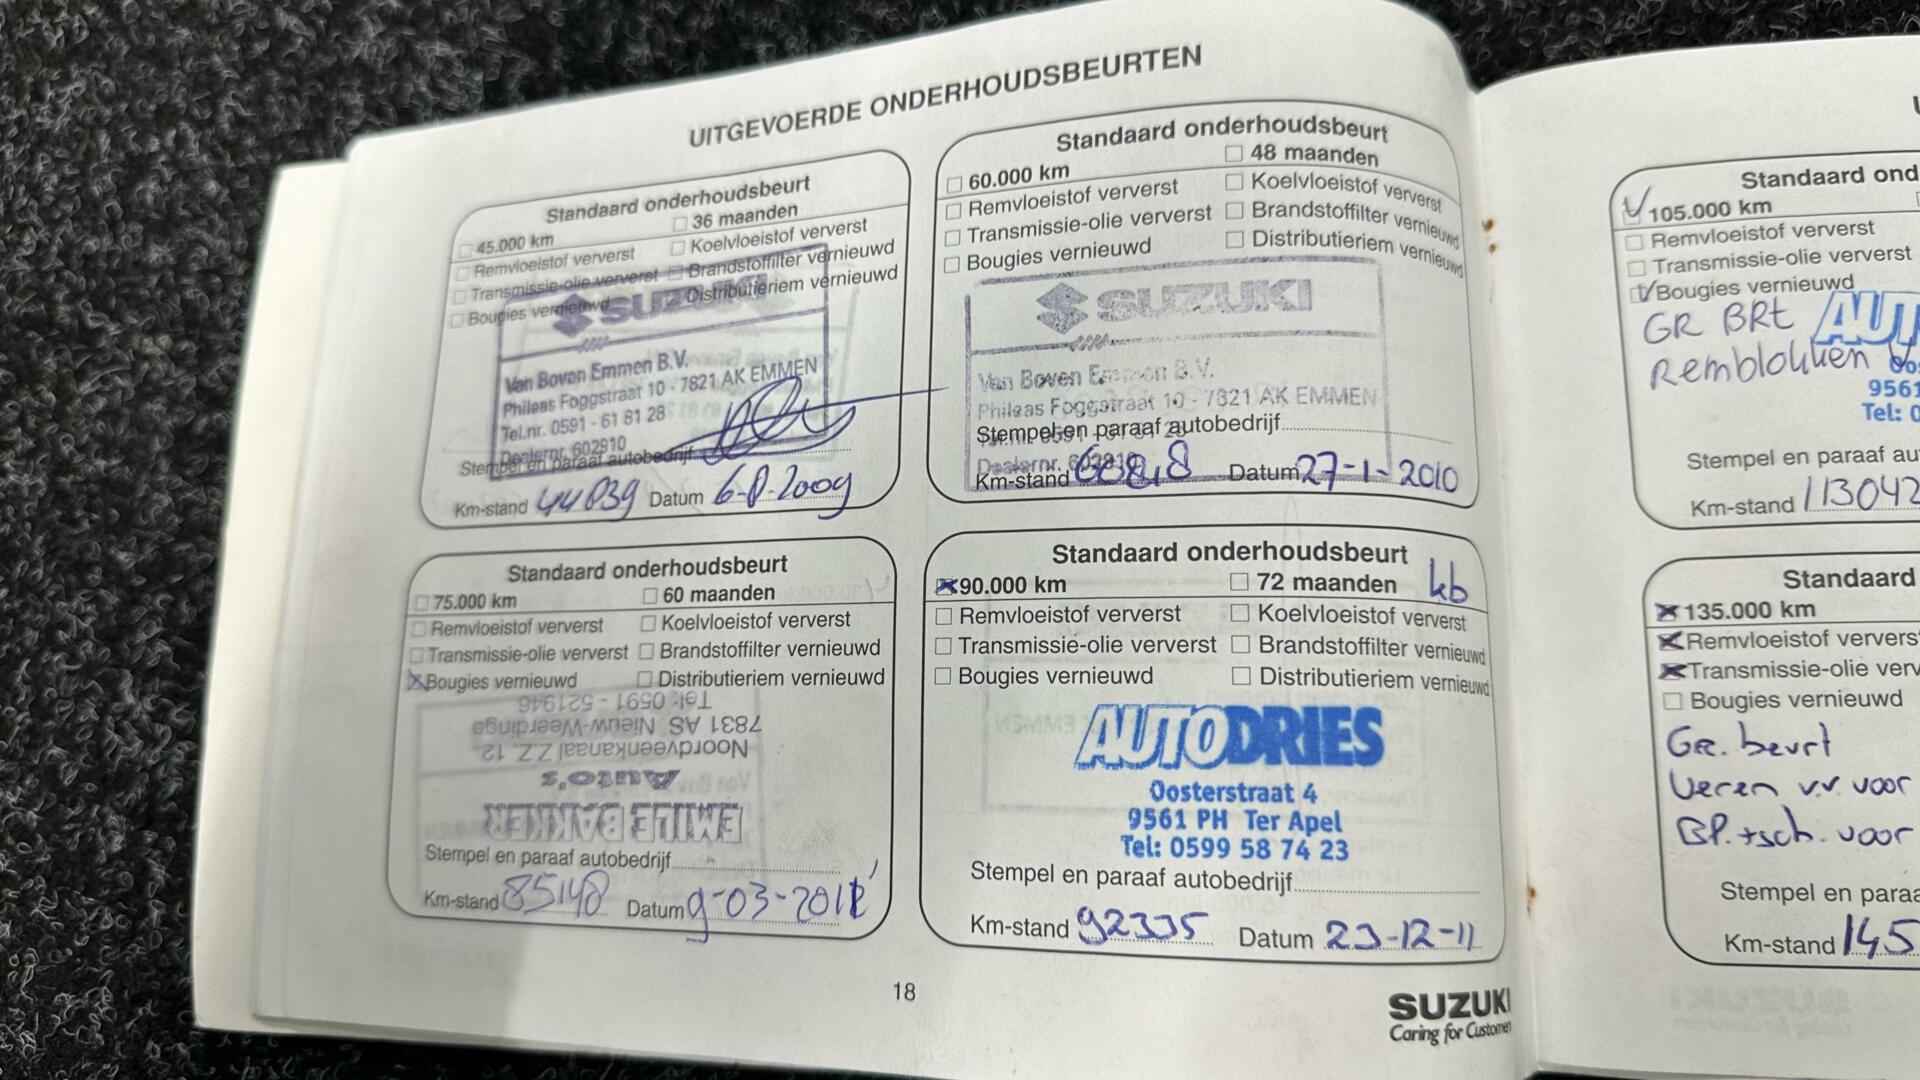 UITGEVOERDE ONDERHOUDSBEURTEN
Standaard onderhoudsbeurt
45.000 km 36 maanden
Remvloeistof ververst Koelvloeistof ververst
Transmissie-olie ververst Brandstoffilter vernieuwd
Bougies vernieuwd Distributieriem vernieuwd
SUZUKI
Van Boven Emmen B.V.
Phileas Foggstraat 10 - 7821 AK EMMEN
Tel.nr. 0591 - 61 81 28
Dealernr. 602910
Stempel en paraaf autobedrijf
Km-stand 44039 Datum 6-8-2009
Standaard onderhoudsbeurt
60.000 km 48 maanden
Remvloeistof ververst Koelvloeistof ververst
Transmissie-olie ververst Brandstoffilter vernieuwd
Bougies vernieuwd Distributieriem vernieuwd
SUZUKI
Van Boven Emmen B.V.
Phileas Foggstraat 10 - 7821 AK EMMEN
Stempel en paraaf autobedrijf
Dealernr. 602910
Km-stand Datum 27-1-2010
Standaard onderhoudsbeurt
75.000 km 60 maanden
Remvloeistof ververst Koelvloeistof ververst
Transmissie-olie ververst Brandstoffilter vernieuwd
Bougies vernieuwd Distributieriem vernieuwd
EMILE BAKKER
Auto's
Noordveenkanaal Z.Z. 12
7831 AS Nieuw-Weerdinge
Tel: 0591 - 521946
Stempel en paraaf autobedrijf
Km-stand 85148 Datum 9-03-2011
Standaard onderhoudsbeurt kb
90.000 km 72 maanden
Remvloeistof ververst Koelvloeistof ververst
Transmissie-olie ververst Brandstoffilter vernieuwd
Bougies vernieuwd Distributieriem vernieuwd
AUTODRIES
Oosterstraat 4
9561 PH Ter Apel
Tel: 0599 58 74 23
Stempel en paraaf autobedrijf
Km-stand 92335 Datum 23-12-11
18
SUZUKI
Caring for Customer
Standaard ond
105.000 km
Remvloeistof ververst
Transmissie-olie ververst
Bougies vernieuwd
GR BRt AUT
Remblokken
9561
Tel: 0
Stempel en paraaf au
Km-stand 113042
Standaard
135.000 km
Remvloeistof ververst
Transmissie-olie verv
Bougies vernieuwd
Gr. beurt
Veren v.v. voor
BP.+sch. voor
Stempel en paraa
Km-stand 145